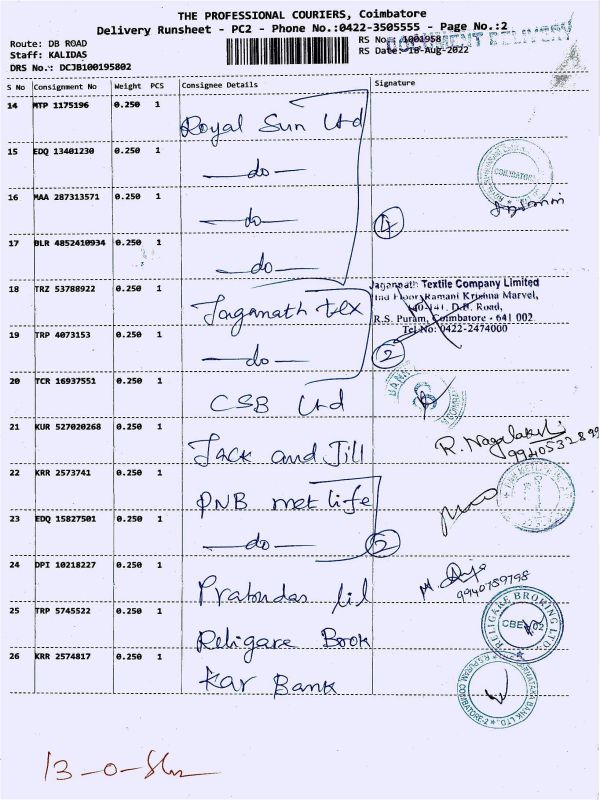 THE PROFESSIONAL COURIERS, Coimbatore
Delivery Runsheet - PC2 - Phone No.:0422-3505555 - Page No.:2
DOCUMENT DELIVERY
Route: DB ROAD
RS No.: 1001958
Staff: KALIDAS
RS Date: 18-Aug-2022
DRS No.: DCJB100195802
S No Consignment No Weight PCS Consignee Details Signature
14 MTP 1175196 0.250 1 Royal Sun Ltd
15 EDQ 13401230 0.250 1 —do—
COIMBATORE
16 MAA 287313571 0.250 1 —do—
4
17 BLR 4852410934 0.250 1 —do—
18 TRZ 53788922 0.250 1 Jaganath tex
Jagannath Textile Company Limited
IInd Floor, Ramani Krishna Marvel,
D.B. Road,
R.S. Puram, Coimbatore - 641 002
Tel No: 0422-2474000
19 TRP 4073153 0.250 1 —do—
2
20 TCR 16937551 0.250 1 CSB Ltd
21 KUR 527020268 0.250 1 Jack and Jill
R. Nagalakshmi
22 KRR 2573741 0.250 1 PNB met life
23 EDQ 15827501 0.250 1 —do—
2
24 DPI 10218227 0.250 1
9940759798
25 TRP 5745522 0.250 1 Religare Book
RELIGARE BROKING LTD
26 KRR 2574817 0.250 1 Kar Bank
KARNATAKA BANK LTD.
R.S.PURAM, COIMBATORE-2